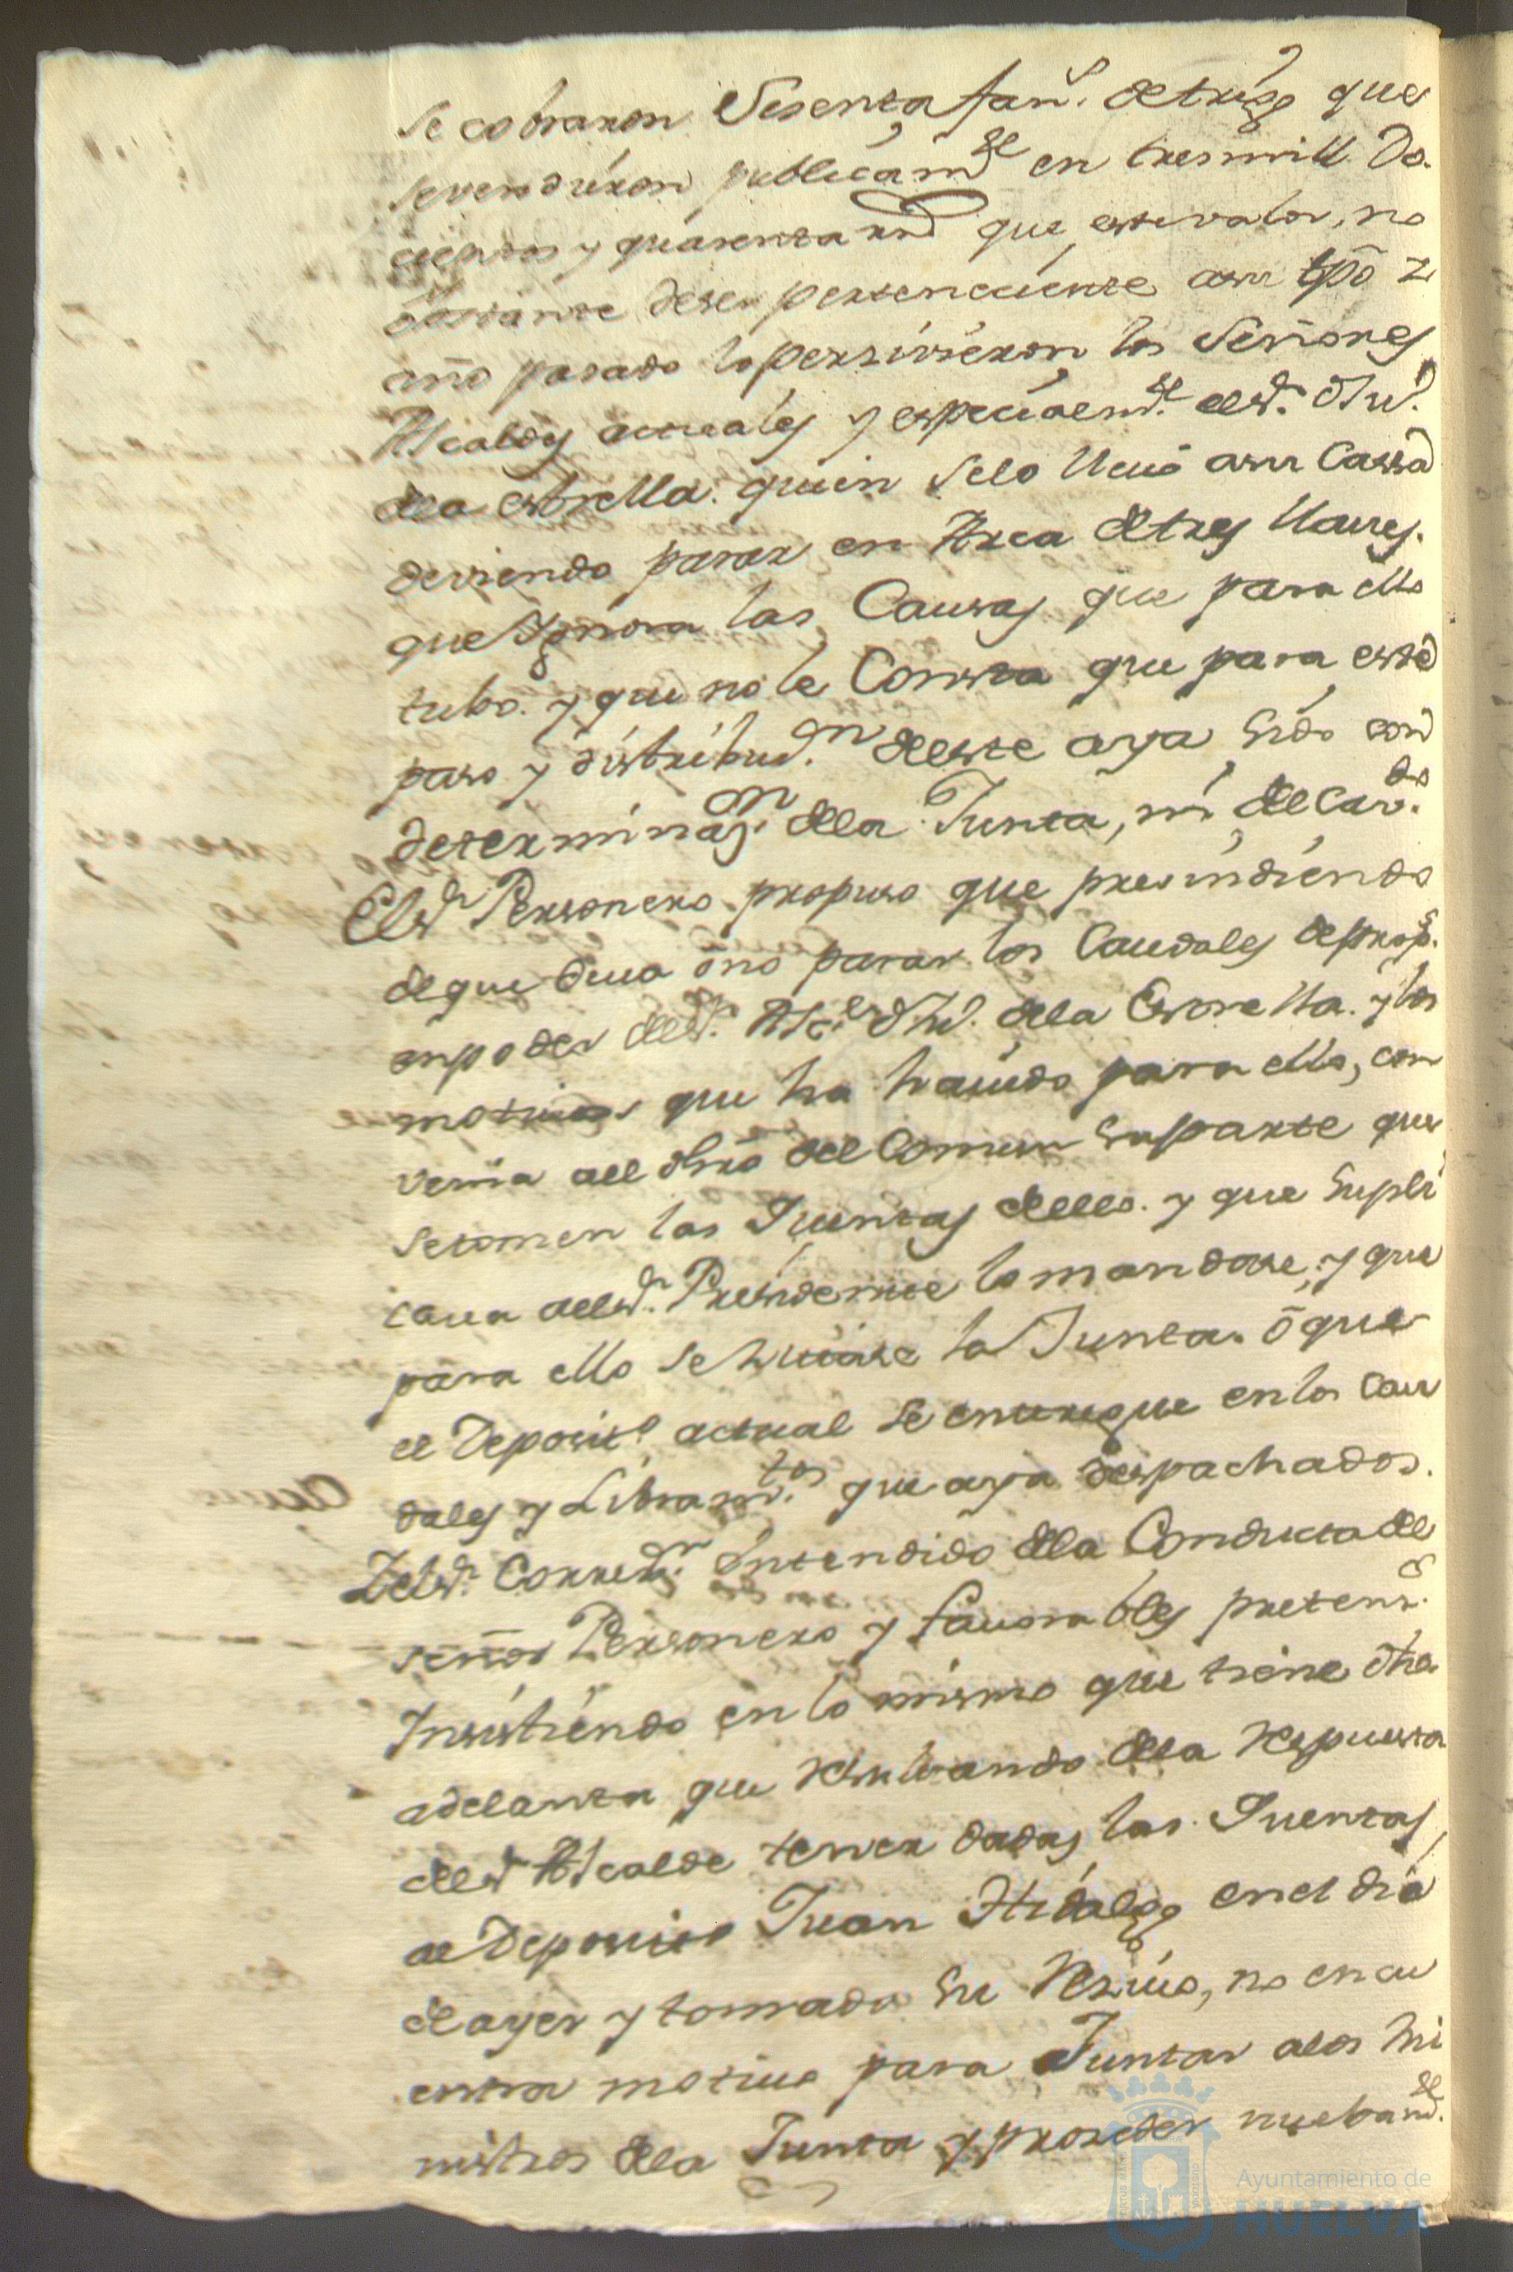 se cobraron Sesenta fan.s de trigo que
se vendieron publicam.te en tresmill Do-
cientos y quarenta rrs que este valor, no
obstante deser perteneciente asu tpõ y
año pasado lo persivieron los Señores
Alcaldes actuales y especialm.te el s.r
dela estrella. quien selo llevó asu Cassa
deviendo parar en Arca de tres llaves.
que Ygnora las Causas que para ello
tubo. y que no le Consta que para este
paso y distribuc.n deeste aya sido con
determinaz.on dela Junta, ni del Cav.do
El s.r Personero propuso que presindiendo
de que deva õ no parar los Caudales deprop.s
enpoder del s.r Alc.e dela Estrella. y los
motivos que ha havido para ello, con
venia al dro del Comun suparte que
setomen las Quentas dello. y que supli
cava al s.r Presidente lo mandase, y que
para ello se hiciese la Junta. õ que
el Deposit.o actual se entregue en los Cau
dales y Libram.tos que aya despachados.
Y el s.r Corred.r entendido dela Conducta del
señor Personero y favorables pretens.s
Insistiendo en lo mismo que tiene dho
adelanta que resultando dela respuesta
del s.r Alcalde tener dadas las Quentas
el Deposito Juan Hidalgo en el dia
de ayer y tomado su Resivo, no encu
entra motivo para Juntar alos Mi
nistros dela Junta y proseder nuebam.te
Ayuntamiento de
HUELVA